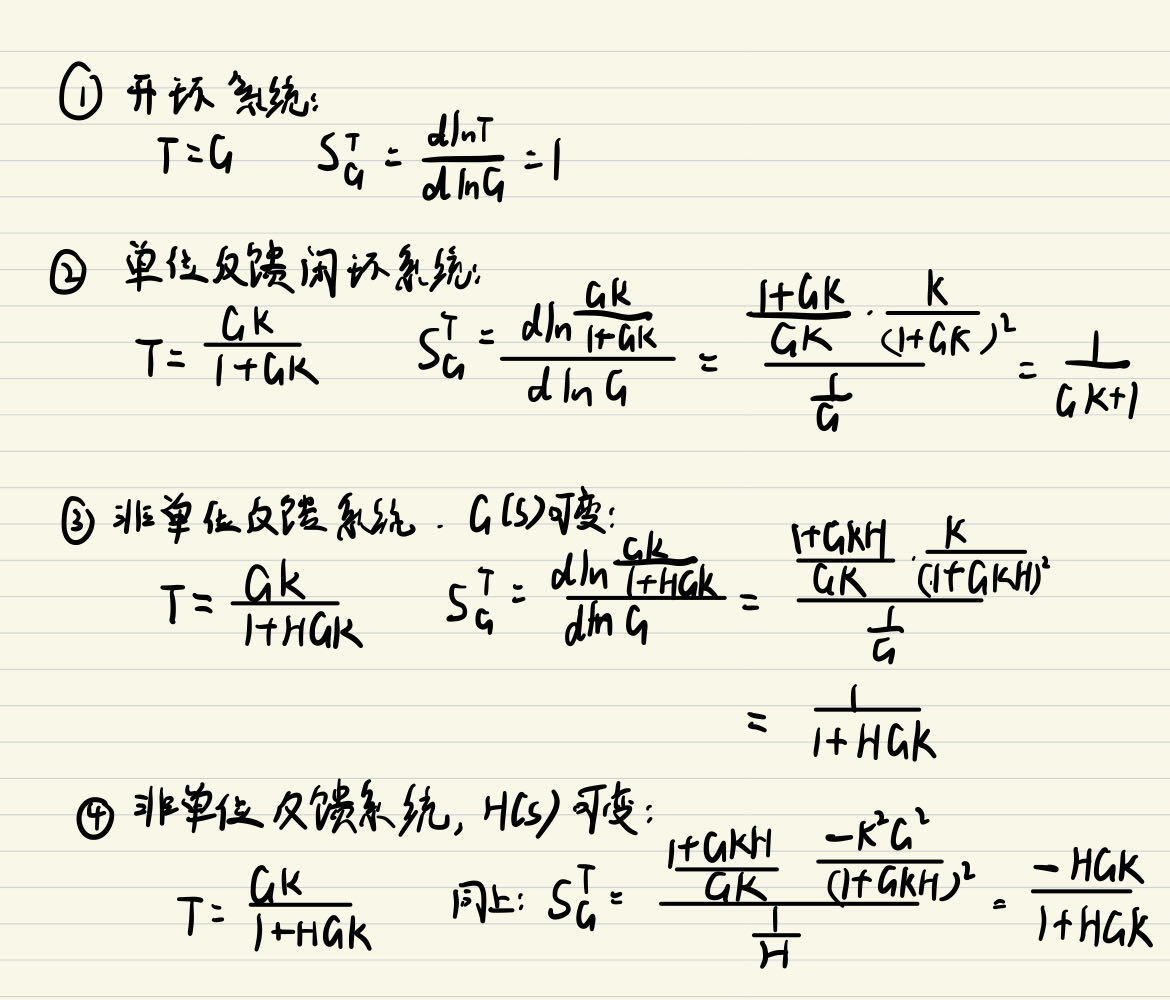 ① 开环系统:
T=G S_G^T = \frac{dlnT}{dlnG} = 1
② 单位反馈闭环系统:
T= \frac{GK}{1+GK} S_G^T = \frac{dln\frac{GK}{1+GK}}{dlnG} = \frac{\frac{1+GK}{GK} \cdot \frac{K}{(1+GK)^2}}{\frac{1}{G}} = \frac{1}{GK+1}
③ 非单位反馈系统. G(S)可变:
T= \frac{GK}{1+HGK} S_G^T = \frac{dln\frac{GK}{1+HGK}}{dlnG} = \frac{\frac{1+GKH}{GK} \cdot \frac{K}{(1+GKH)^2}}{\frac{1}{G}}
= \frac{1}{1+HGK}
④ 非单位反馈系统, H(S)可变:
T= \frac{GK}{1+HGK} 同上: S_G^T = \frac{\frac{1+GKH}{GK} \frac{-K^2G^2}{(1+GKH)^2}}{\frac{1}{H}} = \frac{-HGK}{1+HGK}